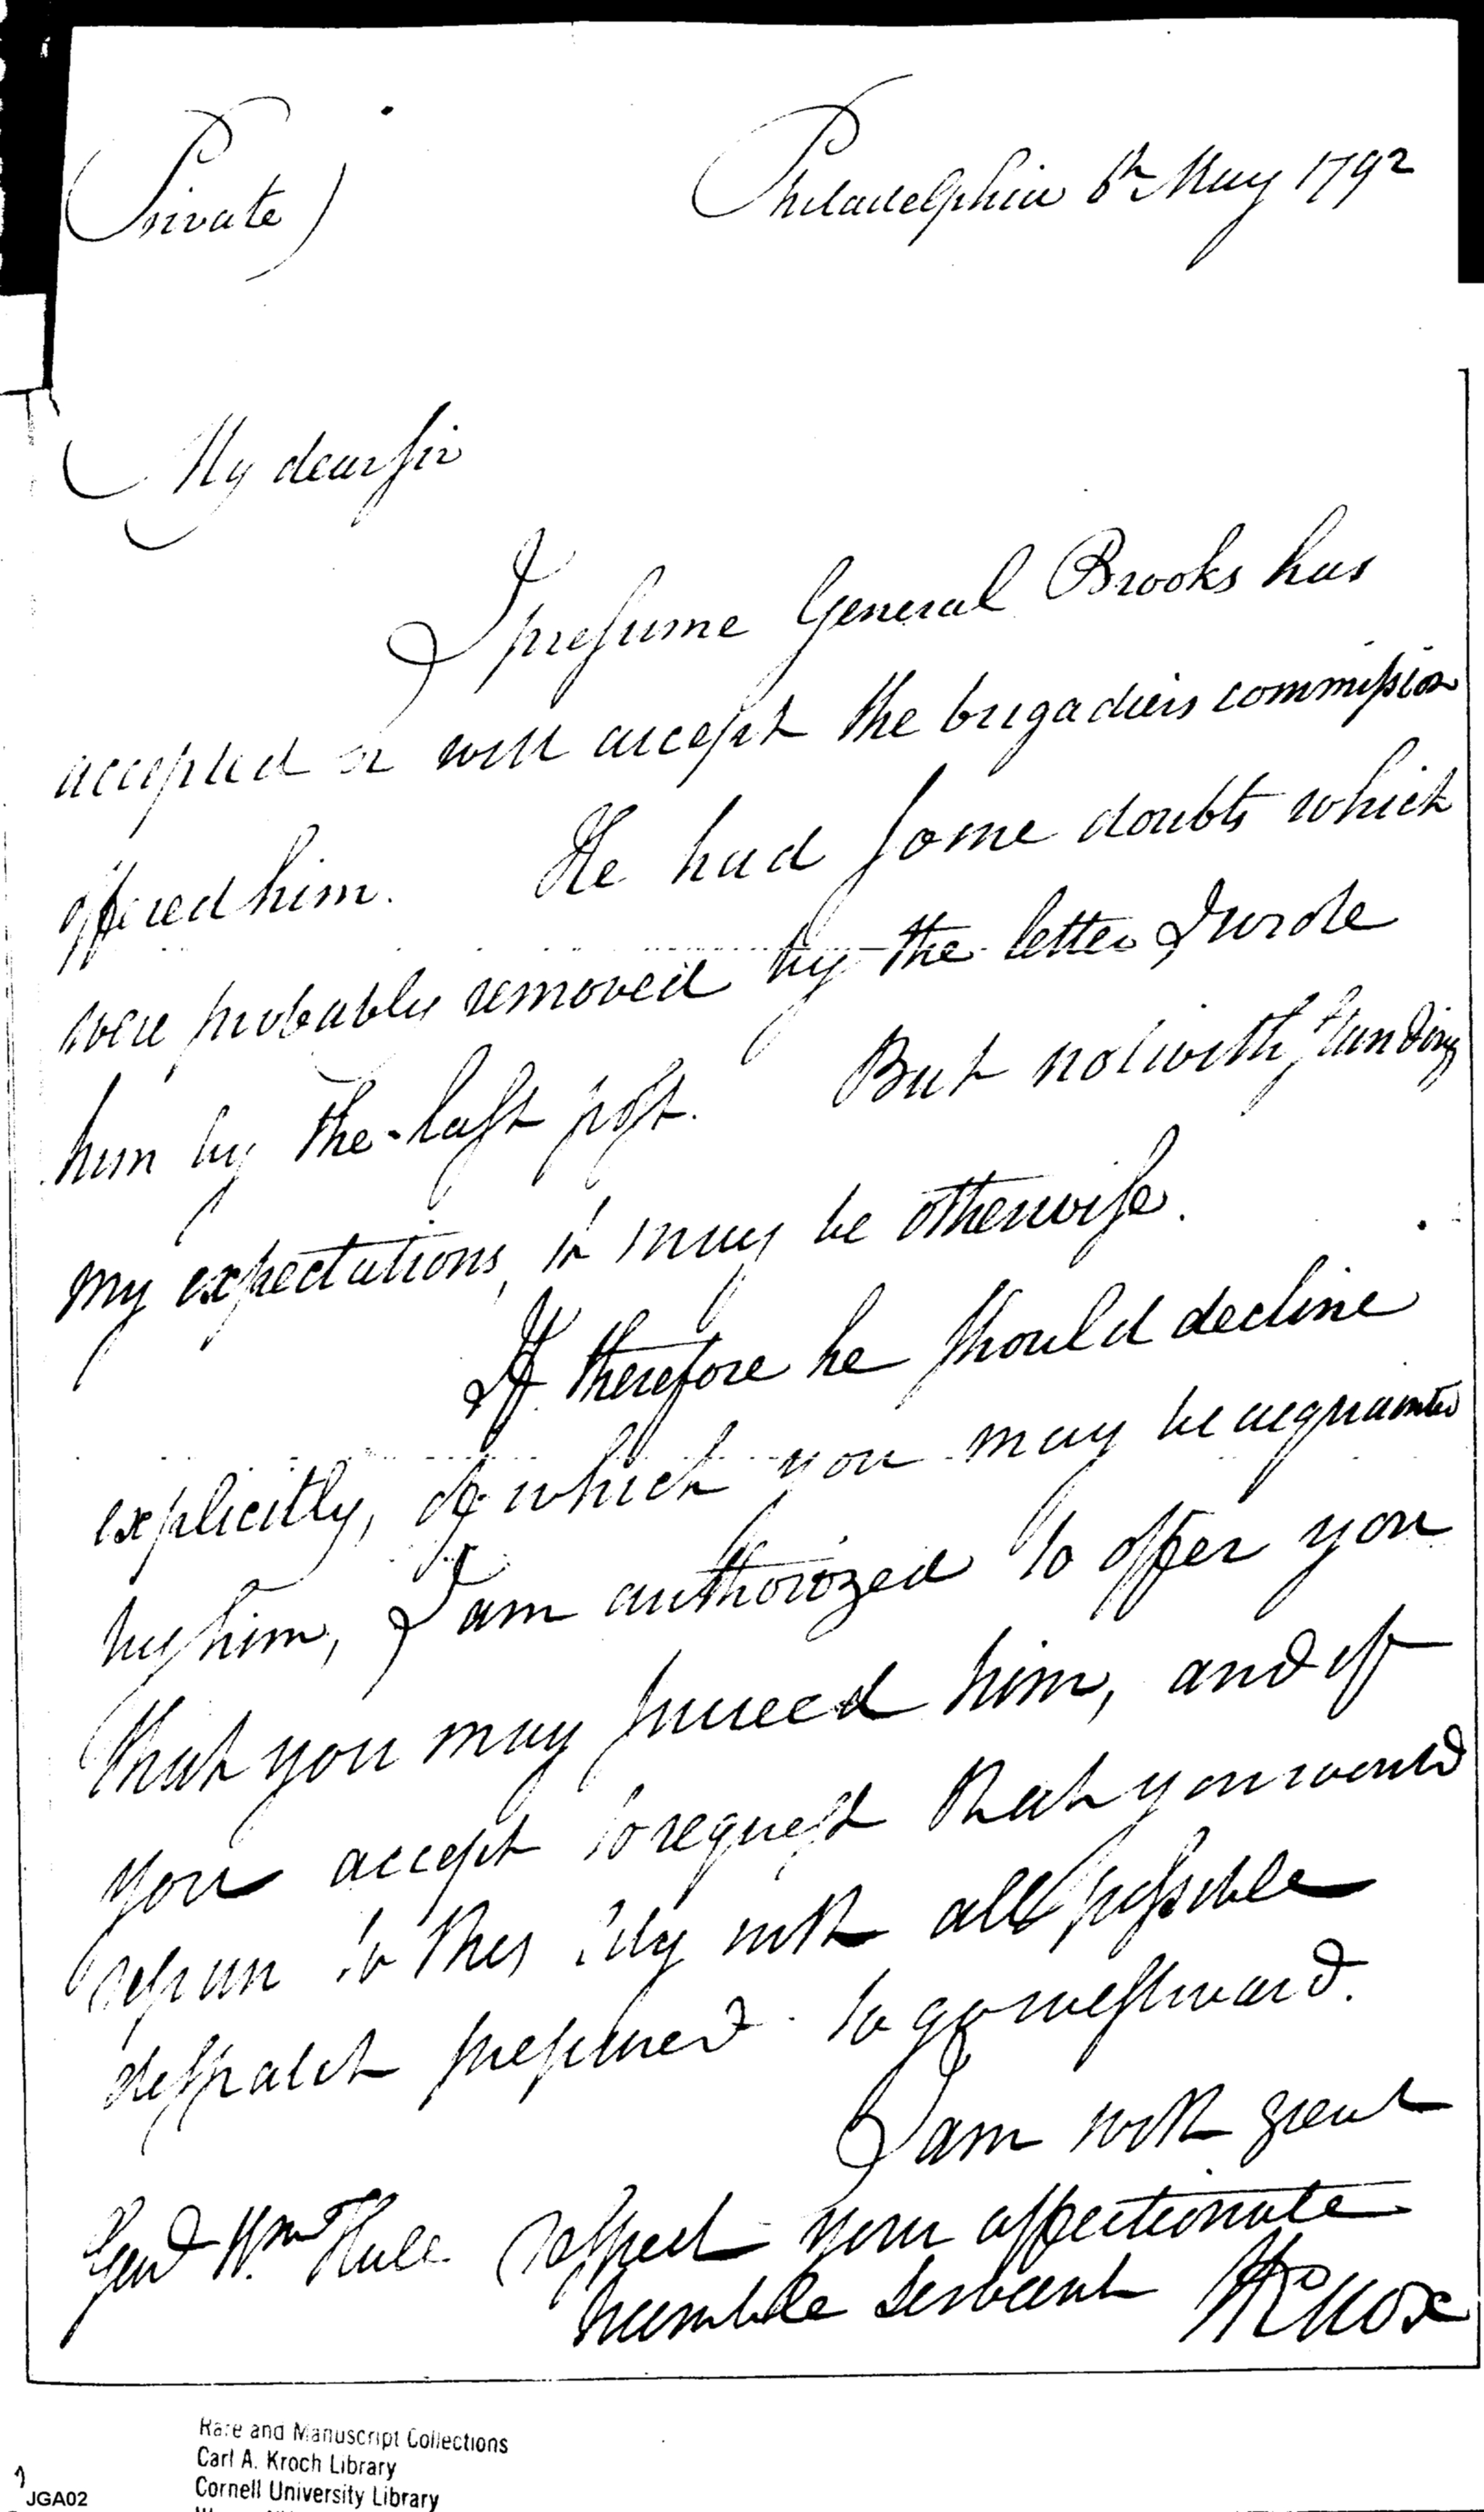 Private)
Philadelphia 6th May 1792
My dear sir
I presume General Brooks has
accepted or will accept the brigadiers commission
offered him. He had some doubts which
were probably removed by the letter I wrote
him by the last post. But notwithstanding
my expectations, it may be otherwise.
If therefore he should decline
explicitly, of which you may be acquainted
by him, I am authorized to offer you
that you may succeed him, and if
you accept to request that you would
repair to this City with all possible
despatch prepared to go westward.
I am with great
respect your affectionate
humble servant HKnox
Genl Wm Hull
Rare and Manuscript Collections
Carl A. Kroch Library
Cornell University Library
JGA02